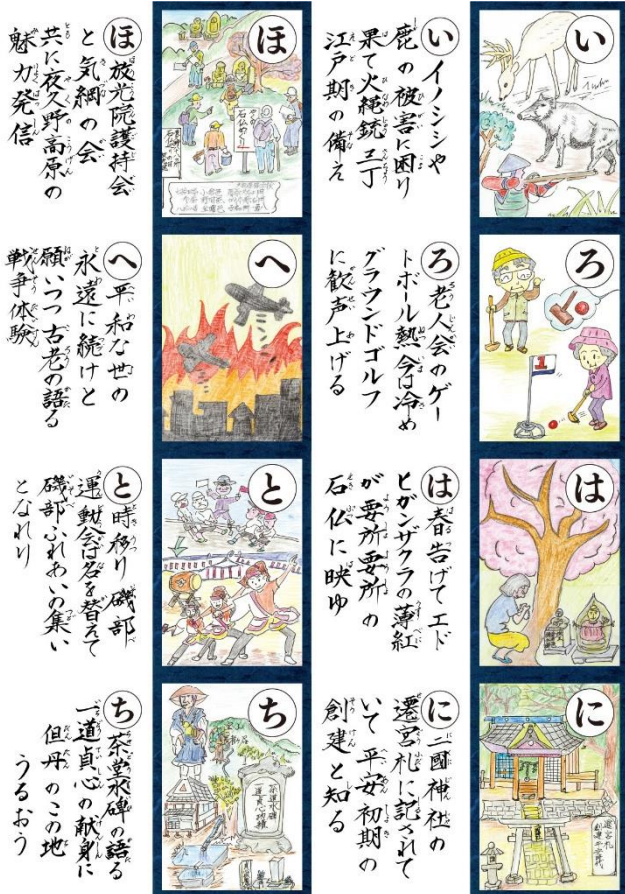 い
い イノシシや
鹿の被害に困り
果て火縄銃 三丁
江戸期の備え
ろ
ろ 老人会のゲー
トボール熱 今は冷め
グラウンドゴルフ
に歓声上げる
1
は
は 春告げてエド
ヒガンザクラの薄紅
が要所要所の
石仏に映ゆ
に
に 二國神社の
遷宮札に記されて
いて 平安初期の
創建と知る
遷宮札
ほ
ほ 放光院護持会
と気綱の会
共に夜久野高原の
魅力発信
石仏めぐり
へ
へ 平和な世の
永遠に続けと
願いつつ古老の語る
戦争体験
と
と 時移り 磯部
運動会は名を替えて
磯部ふれあいの集い
となれり
ち
ち 茶堂水碑の語る
一道貞心の献身に
但丹のこの地
うるおう
茶道水碑
道貞心地蔵